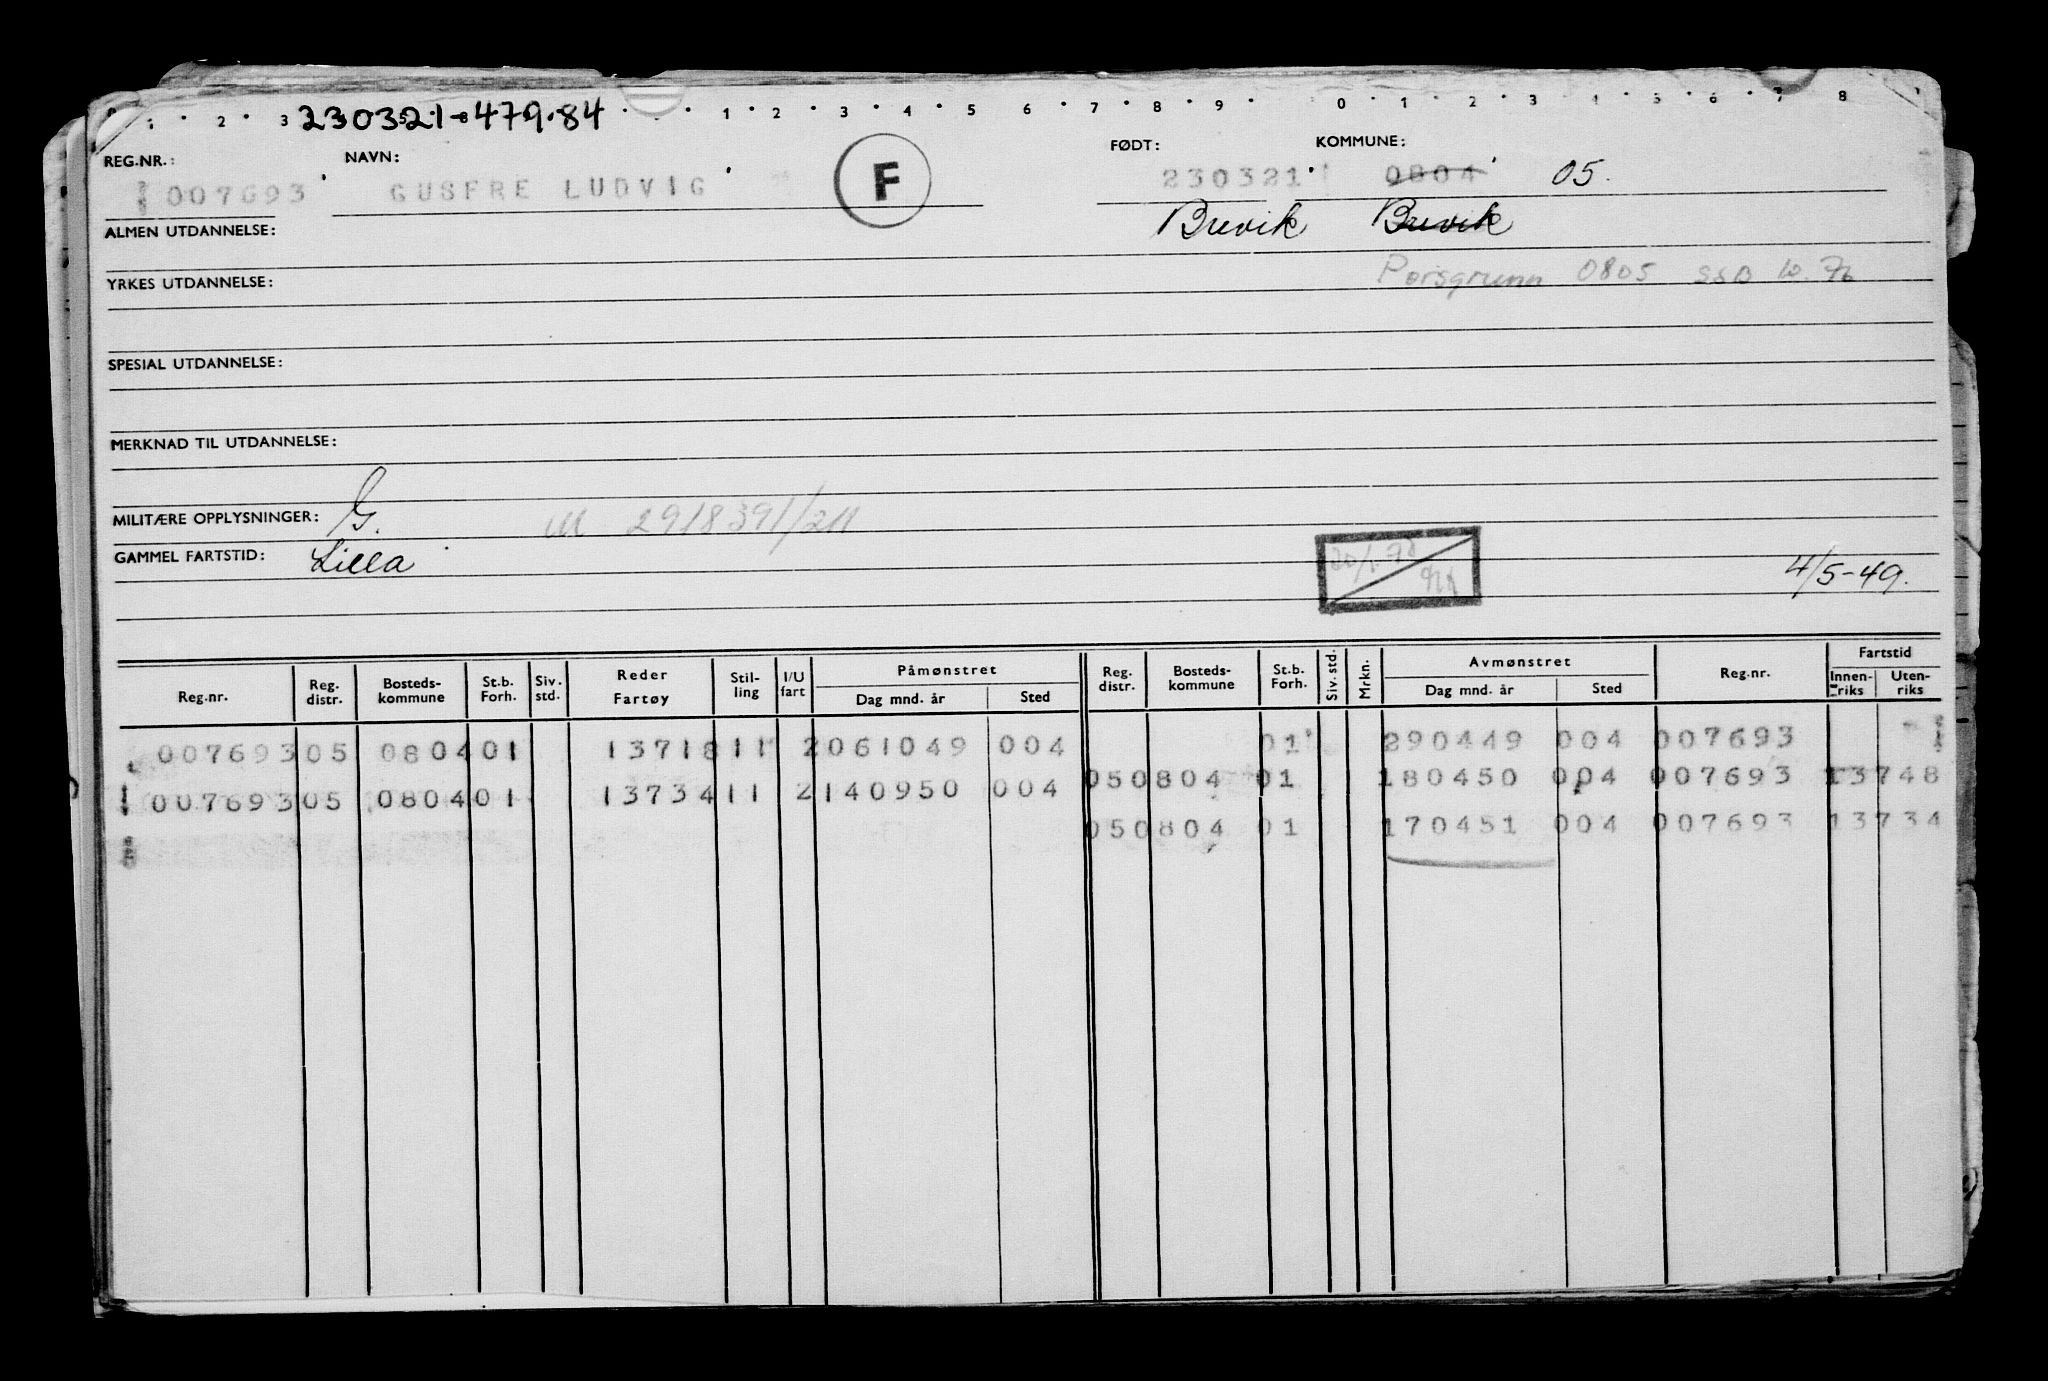 1 2 3 230321-479.84 1 2 3 4 5 6 7 8 9 0 1 2 3 4 5 6 7 8
REG.NR.: NAVN: FØDT: KOMMUNE:
007693 GUSFRE LUDVIG F 230321 0804 05.
ALMEN UTDANNELSE: Brevik Brevik
YRKES UTDANNELSE: Porsgrunn 0805 SSB 10.76
SPESIAL UTDANNELSE:
MERKNAD TIL UTDANNELSE:
MILITÆRE OPPLYSNINGER: G. M 2918391/211
GAMMEL FARTSTID: Lilla 4/5-49.
Reg.nr. Reg. distr. Bosteds- kommune St.b. Forh. Siv. std. Reder Fartøy Stil- ling I/U fart Påmønstret Dag mnd. år Sted Reg. distr. Bosteds- kommune St.b. Forh. Siv. std. Mrkn. Avmønstret Dag mnd. år Sted Reg.nr. Fartstid Innen- riks Uten- riks
007693 05 0804 01 13718 11 2 061049 004 01 290449 004 007693
05 0804 01 180450 004 007693 13748
007693 05 0804 01 13734 11 2 140950 004
05 0804 01 170451 004 007693 13734